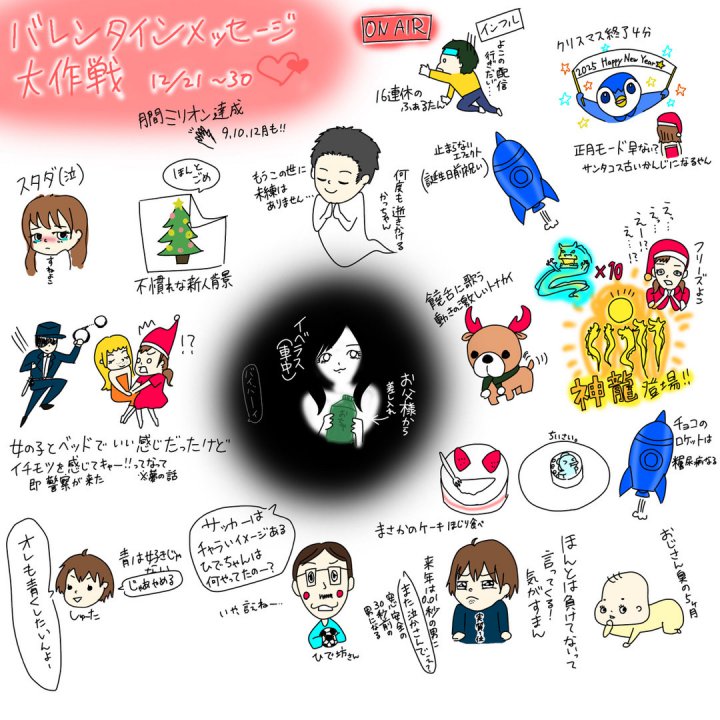 バレンタインメッセージ
大作戦 12/21～30
ON AIR
インフル
よこの配信
行きだい…
16連休の
ふぁるたん
クリスマス終了4分
2025 Happy New Year
正月モード早ない?
サンタコス古いかんじになるやん
月間ミリオン達成
9,10,12月も!!
スタダ(泣)
すねよこ
ほんと
ごめ
不慣れな新人背景
もうこの世に
未練は
ありません…
何度も逝きかける
かっちゃん
止まらない
エフェクト
(誕生日前祝い)
えっ?
えっ…
えー!?!?
フリーズよこ
×10
神龍登場!!
饒舌に歌う
動きの激しいトナカイ
イベラス
(車中)
バイバーイ
お父様から
差し入れ
おちゃ
!?
女の子とベッドでいい感じだったけど
イチモツを感じてキャー!!ってなって
即警察が来た ※夢の話
ちいさっ。
まさかのケーキほじり食べ
チョコの
ロケットは
糖尿病なる
オレも青くしたいんよ～
青は好きじゃ
ない
じゃあやめる
しゅた
サッカーは
チャラいイメージある
ひでちゃんは
何やってたのー?
いや言えねー…
ひで坊さん
来年は0.01秒の男に
また泣かさんでこえ?
安心安全の
30秒前の
男になる
ほんとは負けてないって
言ってくる!
気がすまん
おじさん臭の5ヶ月